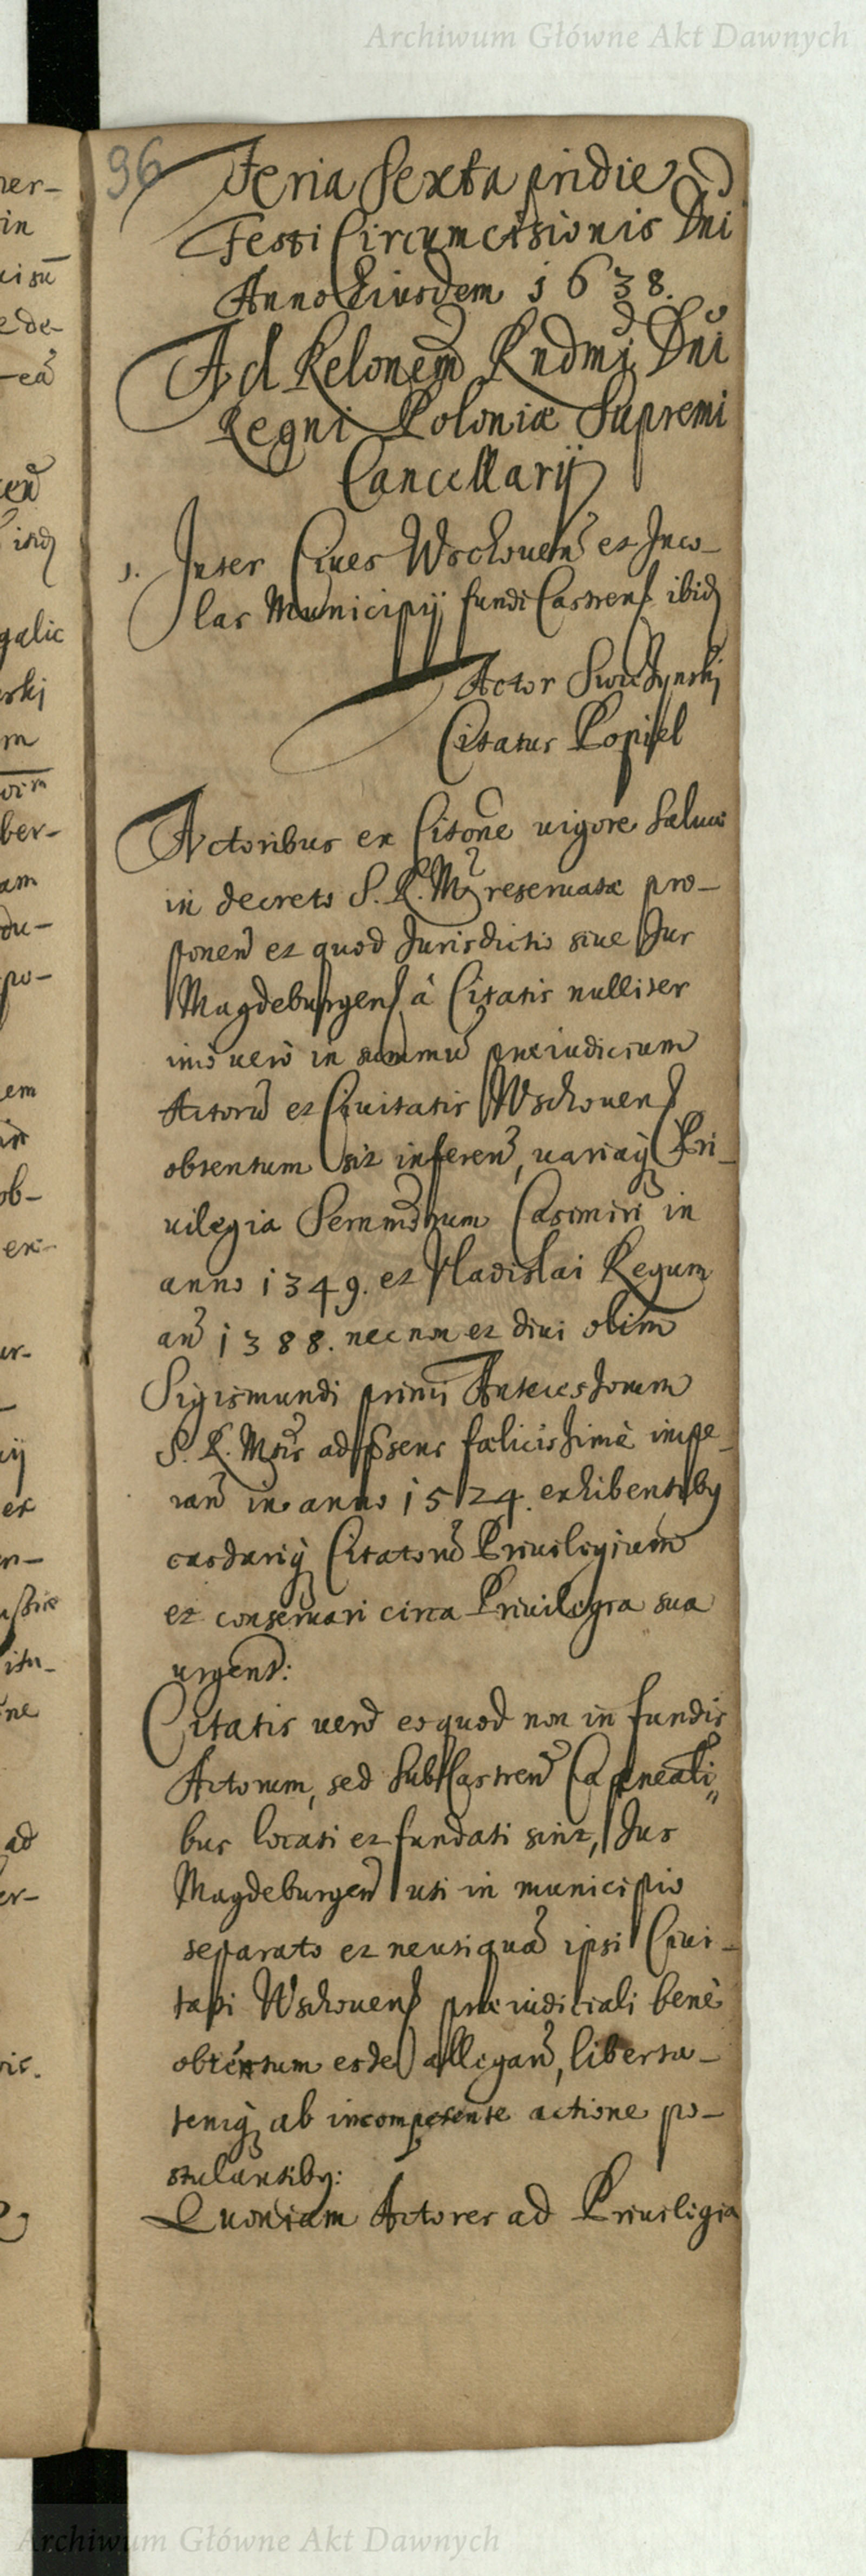 Archiwum Główne Akt Dawnych
96
Feria Sexta pridie
Festi Circumcisionis Dni
Anno Eiusdem 1638.
Ad Relonem Rndmi Dni
Regni Poloniæ Supremi
Cancellarij
1. Inter Ciues Wschouen et Inco-
las Municipij fundi Castrens ibid
Actor Swidzynskj
Citatus Popiel
Actoribus ex Citone uigore Saluæ
in decreto S. R. M reseruatæ pro-
ponen et quod Jurisdictio siue Jus
Magdeburgens à Citatis nulliter
imo uero in summu præiudicium
Actoru et Ciuitatis Wschouens
obtentum sit inferen, uariaq Pri-
uilegia Sernmorum Casimiri in
anno 1349. et Vladislai Regum
an 1388. necnon et diui olim
Sigismundi primi Antecessorum
S. R. Mtis ad præsens fœlicissimè impe-
ran in anno 1524. exhibentiby
casdariq Citatoru Priuilegium
et conseruari circa Priuilegia sua
urgent:
Citatis uero eo quod non in fundis
Actorum, sed Sub Castren Capneali„
bus locati et fundati sint, Jus
Magdeburgen uti in municipio
separato et neutiqua ipsi Ciui-
tati Wschouens præiudiciali benè
obtentum esse allegan, liberta-
temq ab incompetente actione po-
stulantiby:
Quoniam Actores ad Priuilegia
ner-
in
ui su
e de-
-ea
galic
rskj
m
ber-
am
du-
po-
em
ob-
er-
ur-
ij
ex
n-
itu-
ne
ad
er-
ris.
Archiwum Główne Akt Dawnych